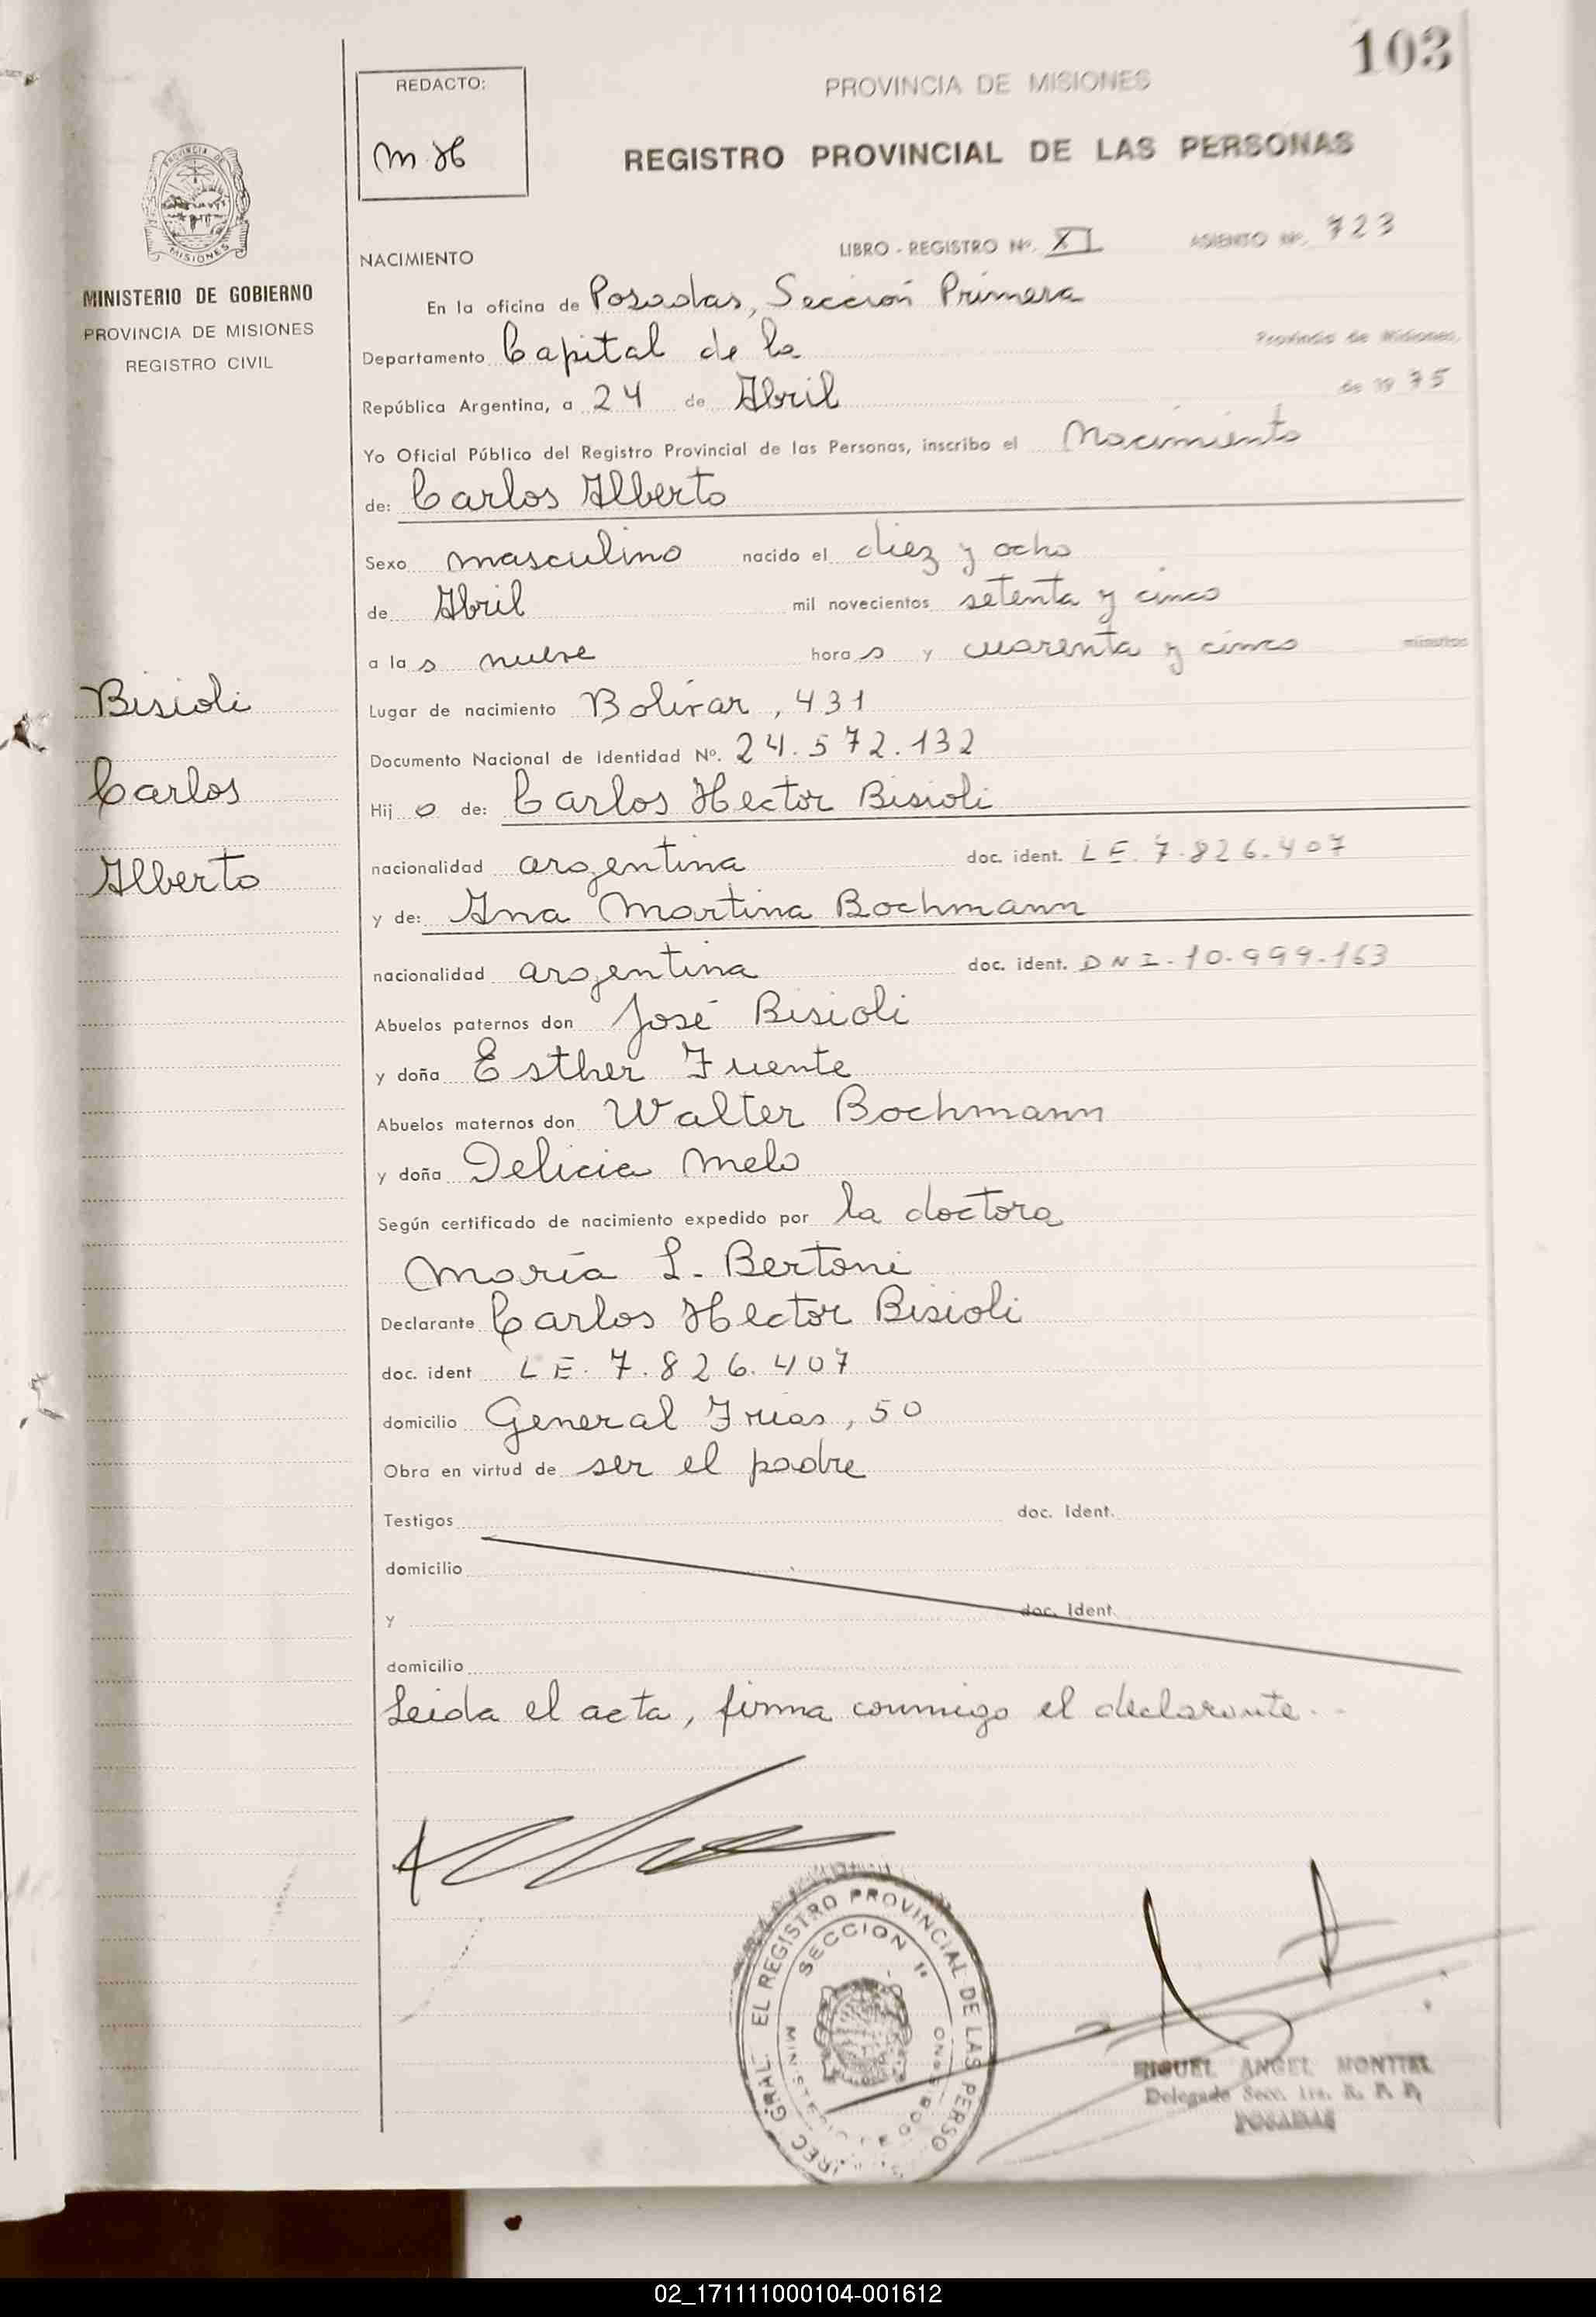 103
REDACTO:
M. H
PROVINCIA DE MISIONES
REGISTRO PROVINCIAL DE LAS PERSONAS
PROVINCIA DE
MISIONES
MINISTERIO DE GOBIERNO
PROVINCIA DE MISIONES
REGISTRO CIVIL
NACIMIENTO LIBRO - REGISTRO Nº. XI ASIENTO Nº. 723
En la oficina de Posadas, Sección Primera
Departamento Capital de la Provincia de Misiones,
República Argentina, a 24 de Abril de 19 75
Yo Oficial Público del Registro Provincial de las Personas, inscribo el Nacimiento
de: Carlos Alberto
Sexo masculino nacido el diez y ocho
de Abril mil novecientos setenta y cinco
a la s nueve hora s y cuarenta y cinco minutos
Bisioli
Carlos
Alberto
Lugar de nacimiento Bolívar, 431
Documento Nacional de Identidad Nº. 24.572.132
Hij o de: Carlos Hector Bisioli
nacionalidad argentina doc. ident. LE. 7.826.407
y de: Ana Martina Bochmann
nacionalidad argentina doc. ident. DNI. 10.999.163
Abuelos paternos don José Bisioli
y doña Esther Fuente
Abuelos maternos don Walter Bochmann
y doña Delicia Melo
Según certificado de nacimiento expedido por la doctora
María L. Bertoni
Declarante Carlos Hector Bisioli
doc. ident LE. 7.826.407
domicilio General Frias, 50
Obra en virtud de ser el padre
Testigos doc. Ident.
domicilio
y doc. Ident.
domicilio
Leida el acta, firma conmigo el declarante.
REC GRAL. EL REGISTRO PROVINCIAL DE LAS PERSO
SECCION 1ª
MIGUEL ANGEL MONTIEL
Delegado Secc. 1ra. R. P. P.
POSADAS
02_171111000104-001612